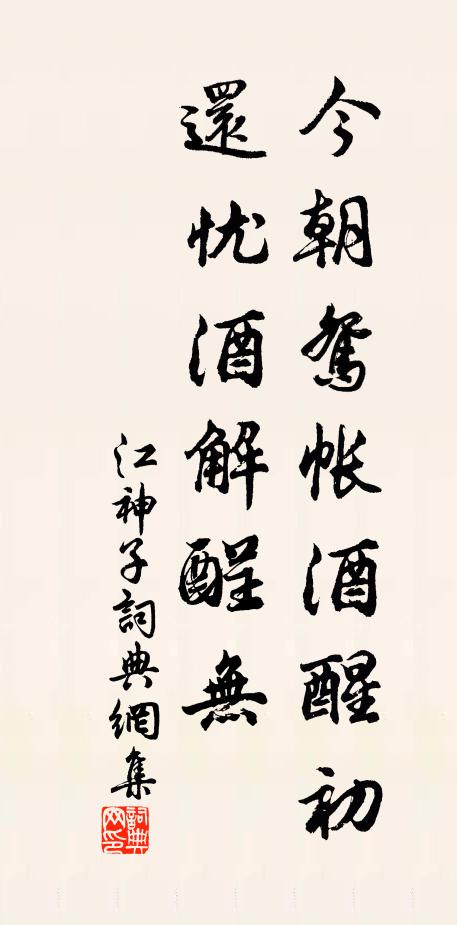 今朝鴛帳酒醒初
還忧酒解酲無
江神子詞典網集
詞典网印